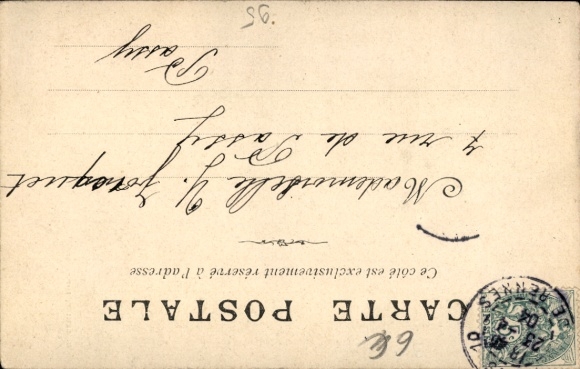 CARTE POSTALE
Ce côté est exclusivement réservé à l'adresse
Mademoiselle Y.
7 rue de Passy
Passy
95.